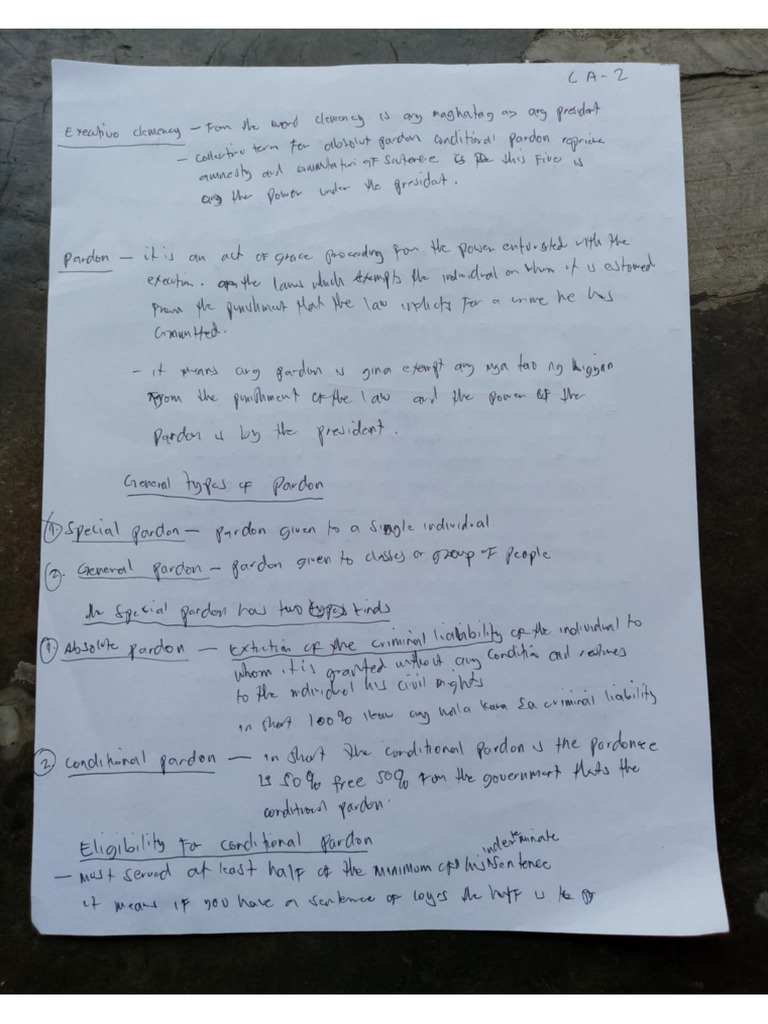 CA-2
Executive clemency – From the word clemency is ang maghatag as ang president
– collective term for absolut pardon conditional pardon reprieve
amnesty and of this Five is
ang the Power under the president.
Pardon – it is an act of grace proceeding from the power entrusted with the
execution. the laws which exempts the individual on whom it is
From the punishment that the law inflicts For a crime he has
Committed.
– it means ang pardon is gina exempt ang mga tao ng
from the punishment of the law and the power of the
Pardon is by the president.
General types of Pardon
1. Special pardon – pardon given to a single individual
2. General pardon – pardon given to classes or group of People
Special pardon has two kinds
1. Absolute pardon – of the criminal liability of the individual to
whom it is granted without any condition and
to the individual his civil rights
in short 100% ikaw ang wala kana sa criminal liability
2 Conditional pardon – in short the conditional pardon is the pardonee
is 50% free 50% from the government thats the
conditional pardon.
Eligibility For conditional Pardon
– Most served at least half of the minimum of his indeterminate sentence
it means if you have a sentence of the half is